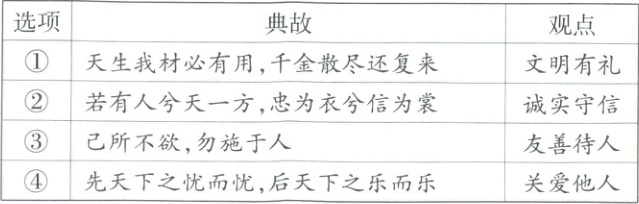 选项 典故 观点
① 天生我材必有用,千金散尽还复来 文明有礼
② 若有人兮天一方,忠为衣兮信为裳 诚实守信
③ 己所不欲,勿施于人 友善待人
④ 先天下之忧而忧,后天下之乐而乐 关爱他人